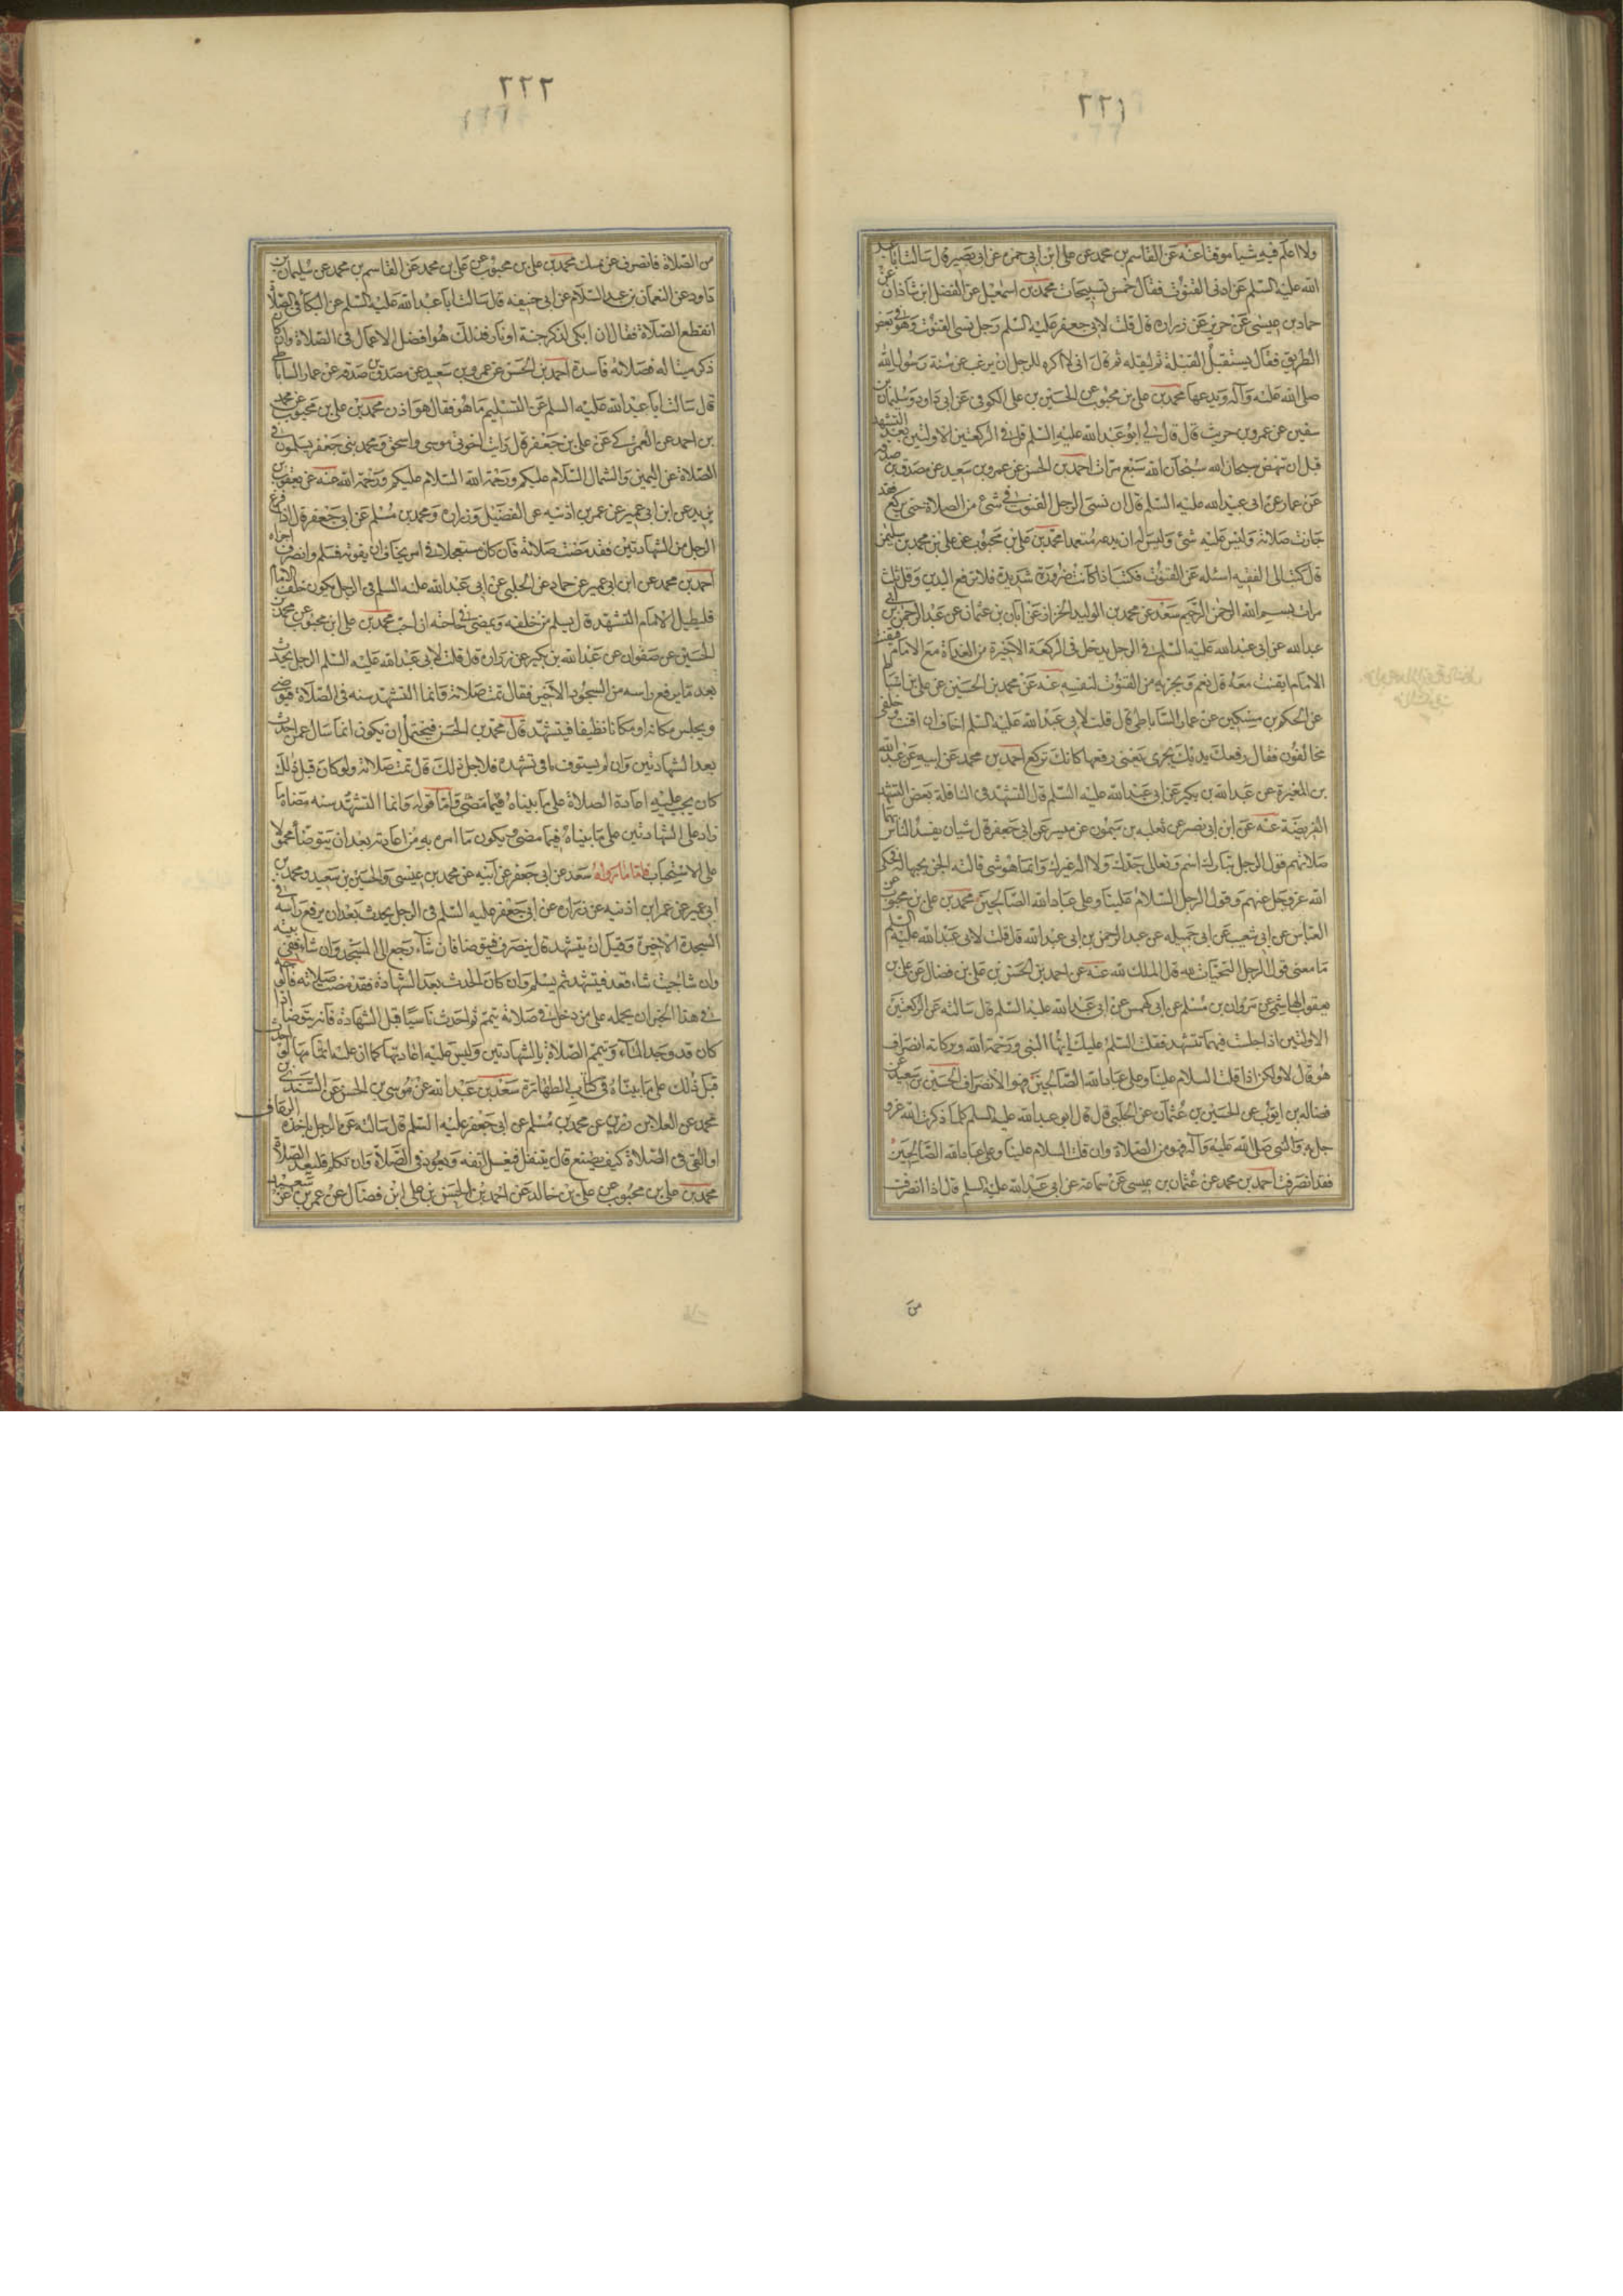 ٢٢١
ولا اعلم فيه شيا موقتا عنه عن القاسم بن محمد عن على ابن ابى حمزه عن ابى بصير قال سالت ابا عبد
الله عليه السلم عن ادنى القنوت فقال خمس تسبيحات محمد بن اسمعيل عن الفضل ابن شاذان عن
حماد بن عيسى عن حريز عن زراره قال قلت لابى جعفر عليه السلم رجل نسى القنوت وهو فى بعض
الطريق فقال يستقبل القبلة ثم ليقله ثم قال انى لاكره للرجل ان يرغب عن سنة رسول الله
صلى الله عليه وآله ويدعها محمد بن على بن محبوب عن الحسين بن على الكوفى عن ابى داود وسليمان بن
سفين عن عمرو بن حريث قال قال لى ابو عبد الله عليه السلم قل فى الركعتين الاولتين بعد التشهد
قبل ان تنهض سبحان الله سبحان الله سبع مرات احمد بن الحسن عن عمرو بن سعيد عن مصدق بن صدقه
عن عمار عن ابى عبد الله عليه السلم قال ان نسى الرجل القنوت فى شئ من الصلاة حتى يركع فقد
جازت صلاته وليس عليه شئ وليس له ان يدعه متعمدا محمد بن على بن محبوب عن على بن محمد بن سليمن
قال كتبت الى الفقيه اسئله عن القنوت فكتب اذا كانت ضرورة شديدة فلا ترفع اليدين وقل ثلث
مرات بسم الله الرحمن الرحيم سعد عن محمد بن الوليد الخزاز عن ابان بن عثمان عن عبد الرحمن بن ابى
عبد الله عن ابى عبد الله عليه السلم فى الرجل يدخل فى الركعة الاخيرة من الغداة مع الامام فقنت
الامام ايقنت معه قال نعم ويجزيه من القنوت لنفسه عنه عن محمد بن الحسين عن على بن
عن الحكم بن مسكين عن عمار الساباطى قال قلت لابى عبد الله عليه السلم اخاف ان اقنت وخلفى
مخالفون فقال رفعك يديك يجزى يعنى رفعهما كانك تركع احمد بن محمد عن ابيه عن عبد الله
بن المغيرة عن عبد الله بن بكير عن ابى عبد الله عليه السلم قال التشهد فى النافلة بعض التشهد
الفريضة عنه عن ابن ابى نصر عن ثعلبه بن ميمون عن ميسر عن ابى جعفر قال شيان يفسد الناس بهما
صلاتهم قول الرجل تبارك اسم وتعالى جدك ولا اله غيرك وانما هو شى قالته الجن بجهالة فحكى
الله عز وجل عنهم وقول الرجل السلام علينا وعلى عباد الله الصالحين محمد بن على بن محبوب عن
العباس عن ابى شعيب عن ابى جميله عن عبد الرحمن بن ابى عبد الله قال قلت لابى عبد الله عليه السلم
ما معنى قول الرجل التحيات لله قال الملك لله عنه عن احمد بن الحسن بن على بن فضال عن على بن
يعقوب الهاشمى عن مروان بن مسلم عن ابى كهمس عن ابى عبد الله عليه السلم قال سالته عن الركعتين
الاولتين اذا جلست فيهما تتشهد فقلت السلم عليك ايها النبى ورحمة الله وبركاته انصراف
هو قال لا ولكن اذا قلت السلام علينا وعلى عباد الله الصالحين فهو الانصراف الحسين بن سعيد عن
فضاله بن ايوب عن الحسين بن عثمان عن الحلبى قال قال ابو عبد الله عليه السلم كلما ذكرت الله عز و
جل به والنبى صلى الله عليه وآله فهو من الصلاة وان قلت السلام علينا وعلى عباد الله الصالحين
فقد انصرفت احمد بن محمد عن عثمان بن عيسى عن سماعة عن ابى عبد الله عليه السلم قال اذا انصرفت
من
٢٢٢
من الصلاة فانصرف عن يمينك محمد بن على بن محبوب عن على بن محمد عن القاسم بن محمد عن سليمان بن
داود عن النعمان بن عبد السلام عن ابى حنيفه قال سالت ابا عبد الله عليه السلم عن البكا فى الصلاة
اتقطع الصلاة فقال ان ابكى لذكر جنة او نار فذلك هو افضل الاعمال فى الصلاة وان كان
ذكر ميتا له فصلاته فاسدة احمد بن الحسن عن عمرو بن سعيد عن مصدق بن صدقه عن عمار الساباطى
قال سالت ابا عبد الله عليه السلم عن التسليم ما هو فقال هو اذن محمد بن على بن محبوب عن محمد
بن احمد عن العمركى عن على بن جعفر قال رايت اخوتى موسى واسحق ومحمد بنى جعفر يسلمون فى
الصلاة عن اليمين والشمال السلام عليكم ورحمة الله السلام عليكم ورحمة الله عنه عن يعقوب بن
يزيد عن ابن ابى عمير عن عمر بن اذينه عن الفضيل وزراره ومحمد بن مسلم عن ابى جعفر قال اذا فرغ
الرجل من الشهادتين فقد مضت صلاته فان كان مستعجلا فى امر يخاف ان يفوته فسلم وانصرف اجزاه
احمد بن محمد عن ابن ابى عمير عن حماد عن الحلبى عن ابى عبد الله عليه السلم فى الرجل يكون خلف الامام
فليطيل الامام التشهد قال يسلم من خلفه ويمضى فى حاجته ان احب محمد بن على ابن محبوب عن محمد بن
الحسين عن صفوان عن عبد الله بن بكير عن زراره قال قلت لابى عبد الله عليه السلم الرجل يحدث
بعد ما يرفع راسه من السجود الاخير فقال تمت صلاته وانما التشهد سنه فى الصلاة فيتوضى
ويجلس مكانه او مكانا نظيفا فيتشهد قال محمد بن الحسن فيحتمل ان يكون انما سال عمن احدث
بعد الشهادتين وان لم يستوف باقى تشهده فلاجل ذلك قال تمت صلاته ولو كان قبل ذلك
كان يجب عليه اعادة الصلاة على ما بيناه فيما مضى واما قوله وانما التشهد سنه معناه ما
زاد على الشهادتين على ما بيناه فيما مضى ويكون ما امر به من اعادته بعد ان يتوضأ محمولا
على الاستحباب فاما ما رواه سعد عن ابى جعفر عن ابيه عن محمد بن عيسى والحسين بن سعيد ومحمد بن
ابى عمير عن عمر ابن اذنيه عن زراره عن ابى جعفر عليه السلم فى الرجل يحدث بعد ان يرفع راسه فى
السجدة الاخيرة وقبل ان يتشهد قال ينصرف فيتوضا فان شاء رجع الى المسجد وان شاء ففى بيته
وان شا حيث شاء قعد فيتشهد ثم يسلم وان كان الحدث بعد الشهادة فقد مضت صلاته فالوجه
فى هذا الخبر ان يحمله على من دخل فى صلاته بتيمم ثم احدث ناسيا قبل الشهادة فانه يتوضا اذا
كان قد وجد الماء ويتمم الصلاة بالشهادتين وليس عليه اعادتها كما ان عليه اتمامها لو احدث
قبل ذلك على ما بيناه فى كتاب الطهارة سعد بن عبد الله عن موسى بن الحسن عن السندى بن
محمد عن العلا بن رزين عن محمد بن مسلم عن ابى جعفر عليه السلم قال سالته عن الرجل ياخذه الرعاف
او القئ فى الصلاة كيف يصنع قال ينفتل فيغسل انفه ويعود فى الصلاة وان تكلم فليعد الصلاة
محمد بن على بن محبوب عن على بن خالد عن احمد بن الحسن بن على ابن فضال عن عمرو بن سعيد عن